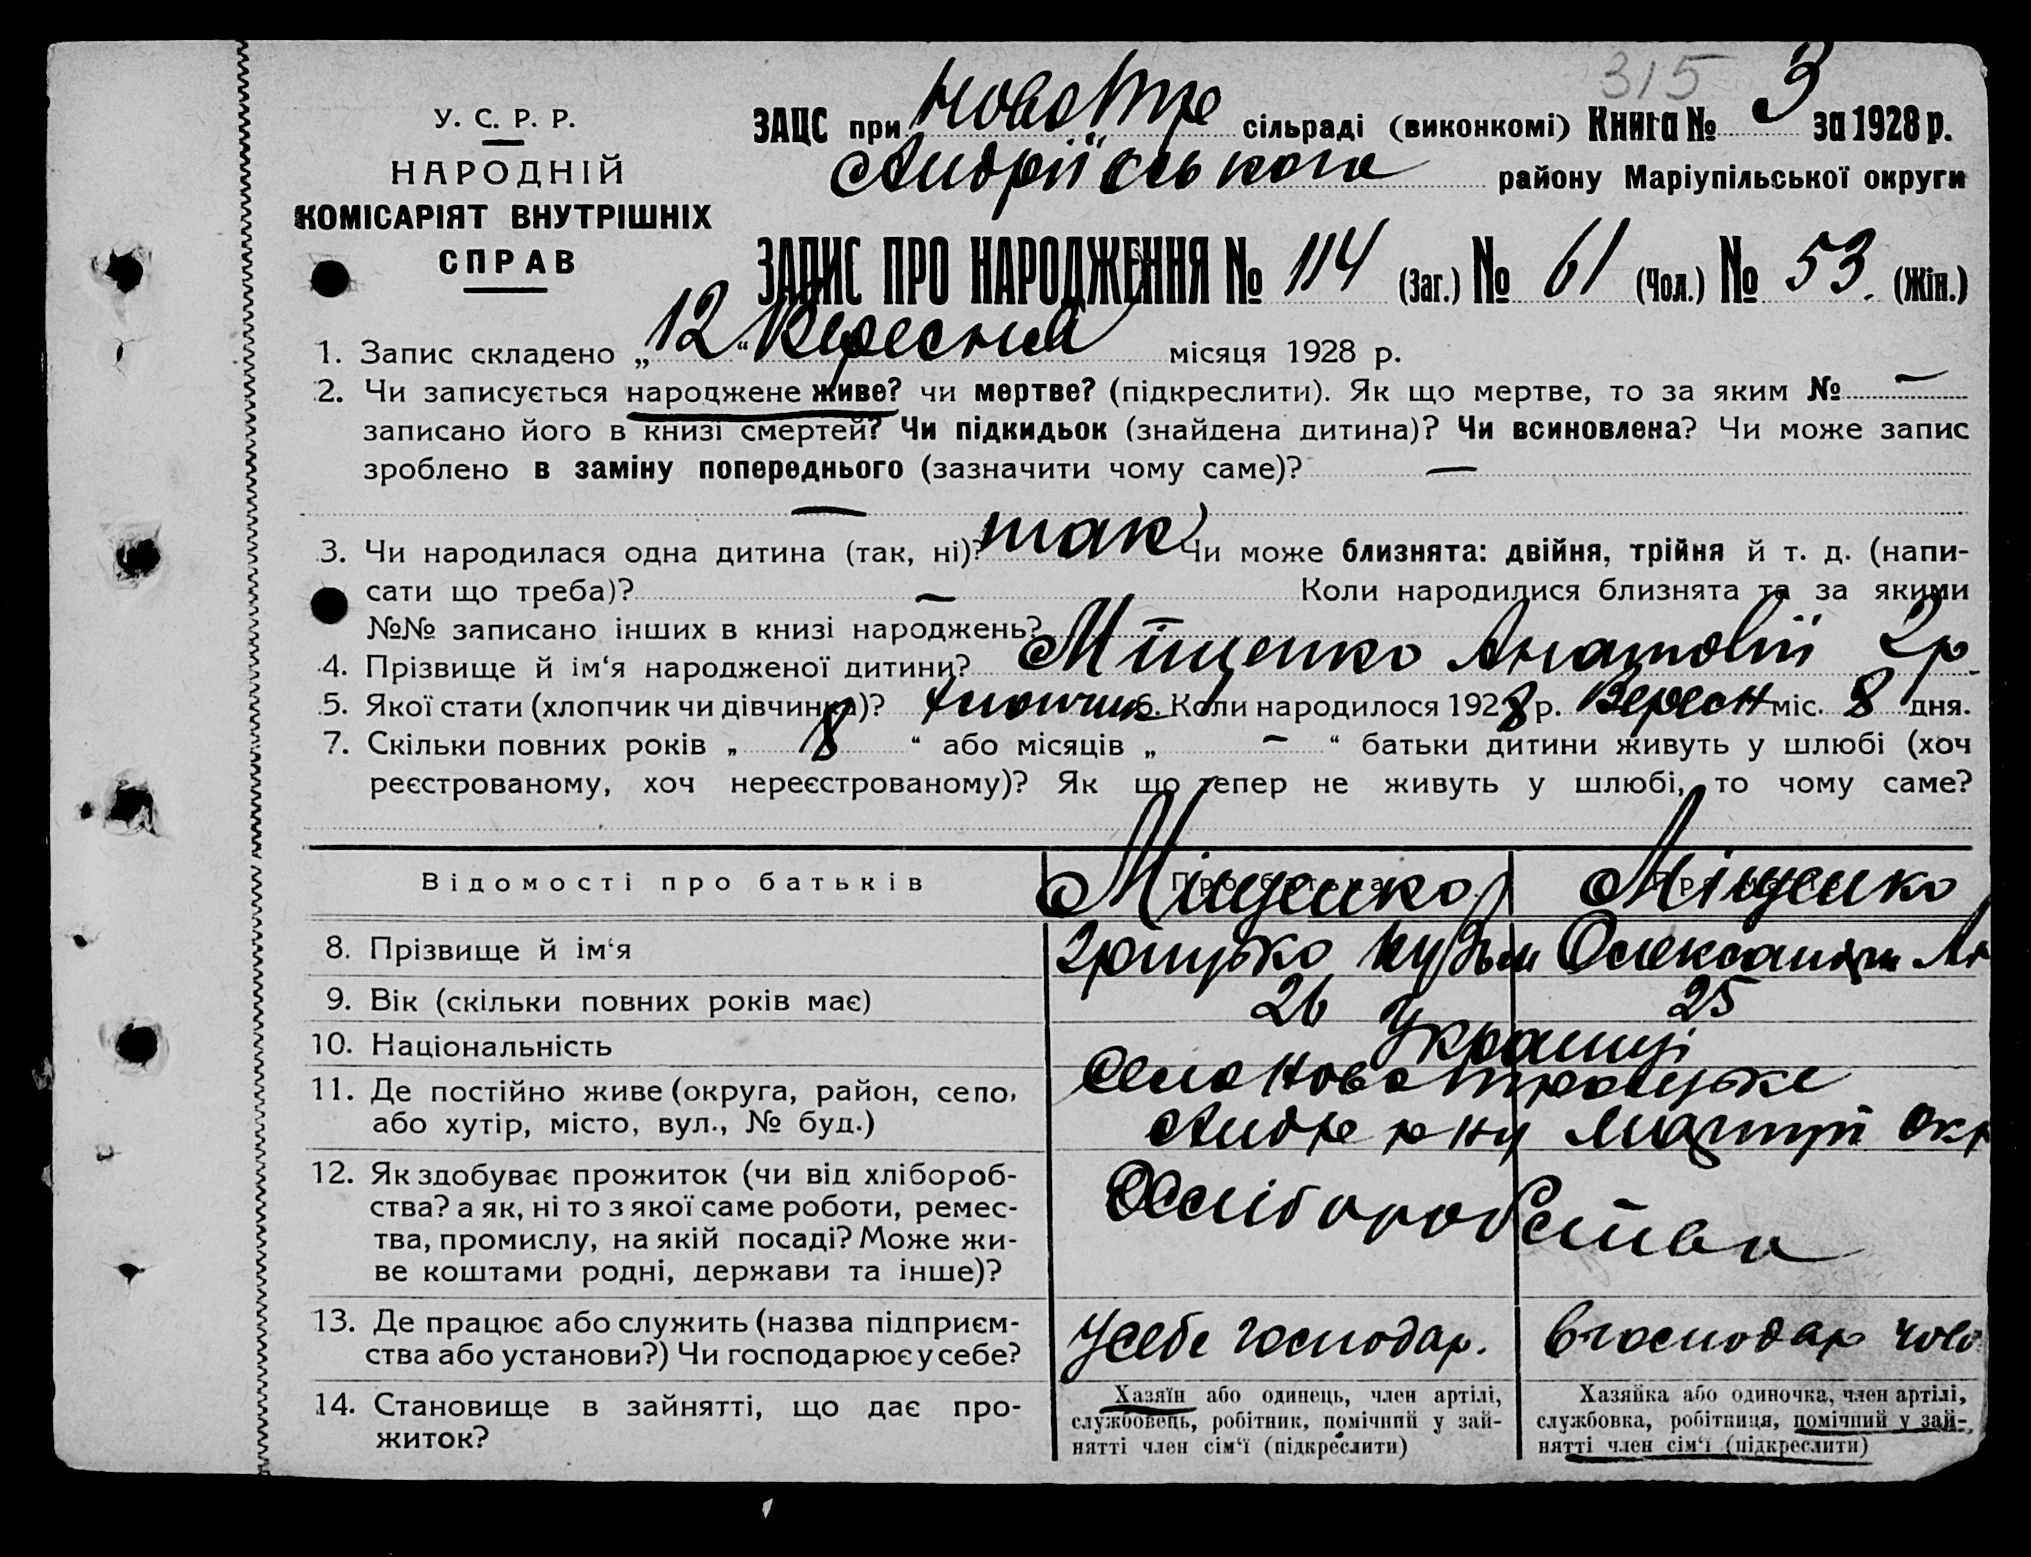 315
У. С. Р. Р.
НАРОДНІЙ
КОМІСАРІЯТ ВНУТРІШНІХ
СПРАВ
ЗАЦС при Новотр сільраді (виконкомі) Книга № 3 за 1928 р.
Андріївського району Маріупільської округи
ЗАПИС ПРО НАРОДЖЕННЯ № 114 (Заг.) № 61 (Чол.) № 53. (Жін.)
1. Запис складено „12“ Вересня місяця 1928 р.
2. Чи записується народжене живе? чи мертве? (підкреслити). Як що мертве, то за яким № —
записано його в книзі смертей? Чи підкидьок (знайдена дитина)? Чи всиновлена? Чи може запис
зроблено в заміну попереднього (зазначити чому саме)? —
—
3. Чи народилася одна дитина (так, ні)? так Чи може близнята: двійня, трійня й т. д. (напи-
сати що треба)? — Коли народилися близнята та за якими
№№ записано інших в книзі народжень?
4. Прізвище й ім‘я народженої дитини? Міщенко Анатолій Гр.
5. Якої стати (хлопчик чи дівчинка)? хлопчик 6. Коли народилося 1928 р. Вересн міс. 8 дня.
7. Скільки повних років „ 8 “ або місяців „ — “ батьки дитини живуть у шлюбі (хоч
реєстрованому, хоч нереєстрованому)? Як що тепер не живуть у шлюбі, то чому саме?
Відомості про батьків Міщенко Міщенко
8. Прізвище й ім‘я Грицько Кузьм Олександра
9. Вік (скільки повних років має) 26 25
10. Національність Українці
11. Де постійно живе (округа, район, село, Село Новотроицьке
або хутір, місто, вул., № буд.) Андр р ну Маріуп Окр
12. Як здобуває прожиток (чи від хлібороб- Хліборобства
ства? а як, ні то з якої саме роботи, ремес-
тва, промислу, на якій посаді? Може жи-
ве коштами родні, держави та інше)?
13. Де працює або служить (назва підприєм- У себе господар. в господар чоло
ства або установи?) Чи господарює у себе?
14. Становище в зайнятті, що дає про-
житок?
Хазяїн або одинець, член артілі,
службовець, робітник, помічний у зай-
нятті член сім‘ї (підкреслити)
Хазяйка або одиночка, член артілі,
службовка, робітниця, помічний у зай-
нятті член сім‘ї (підкреслити)